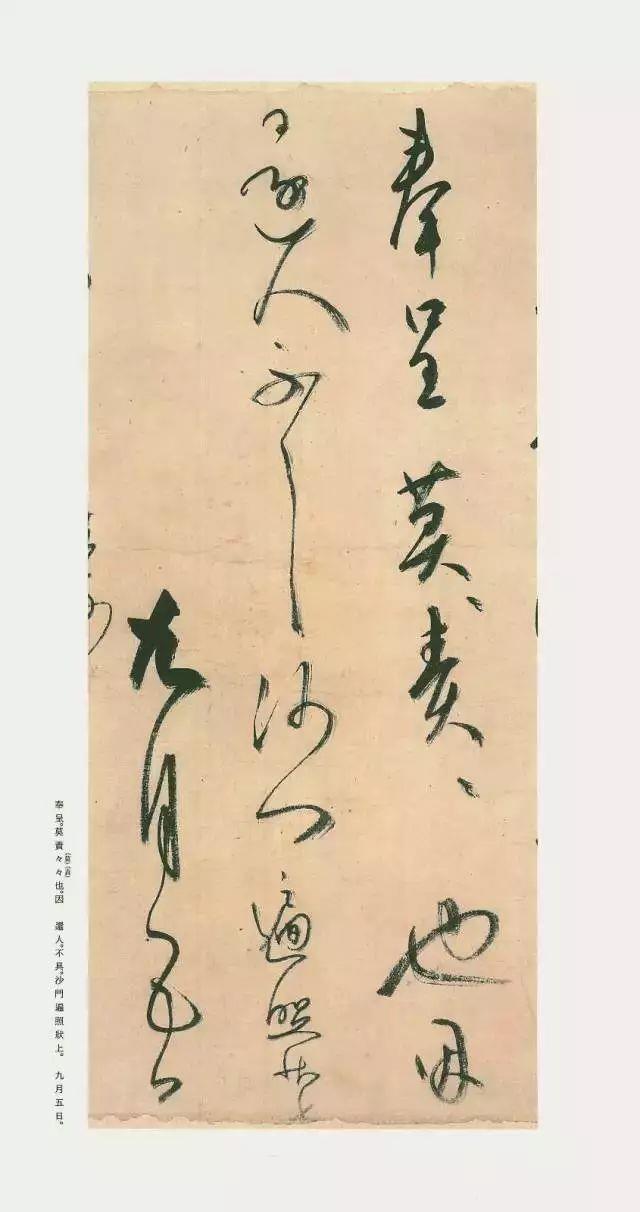 奉呈莫々責々也因
還人不具沙門遍照状上
九月五日
奉呈。莫責々々也。因　還人。不具。沙門遍照狀上。　九月五日。
（莫）（責）